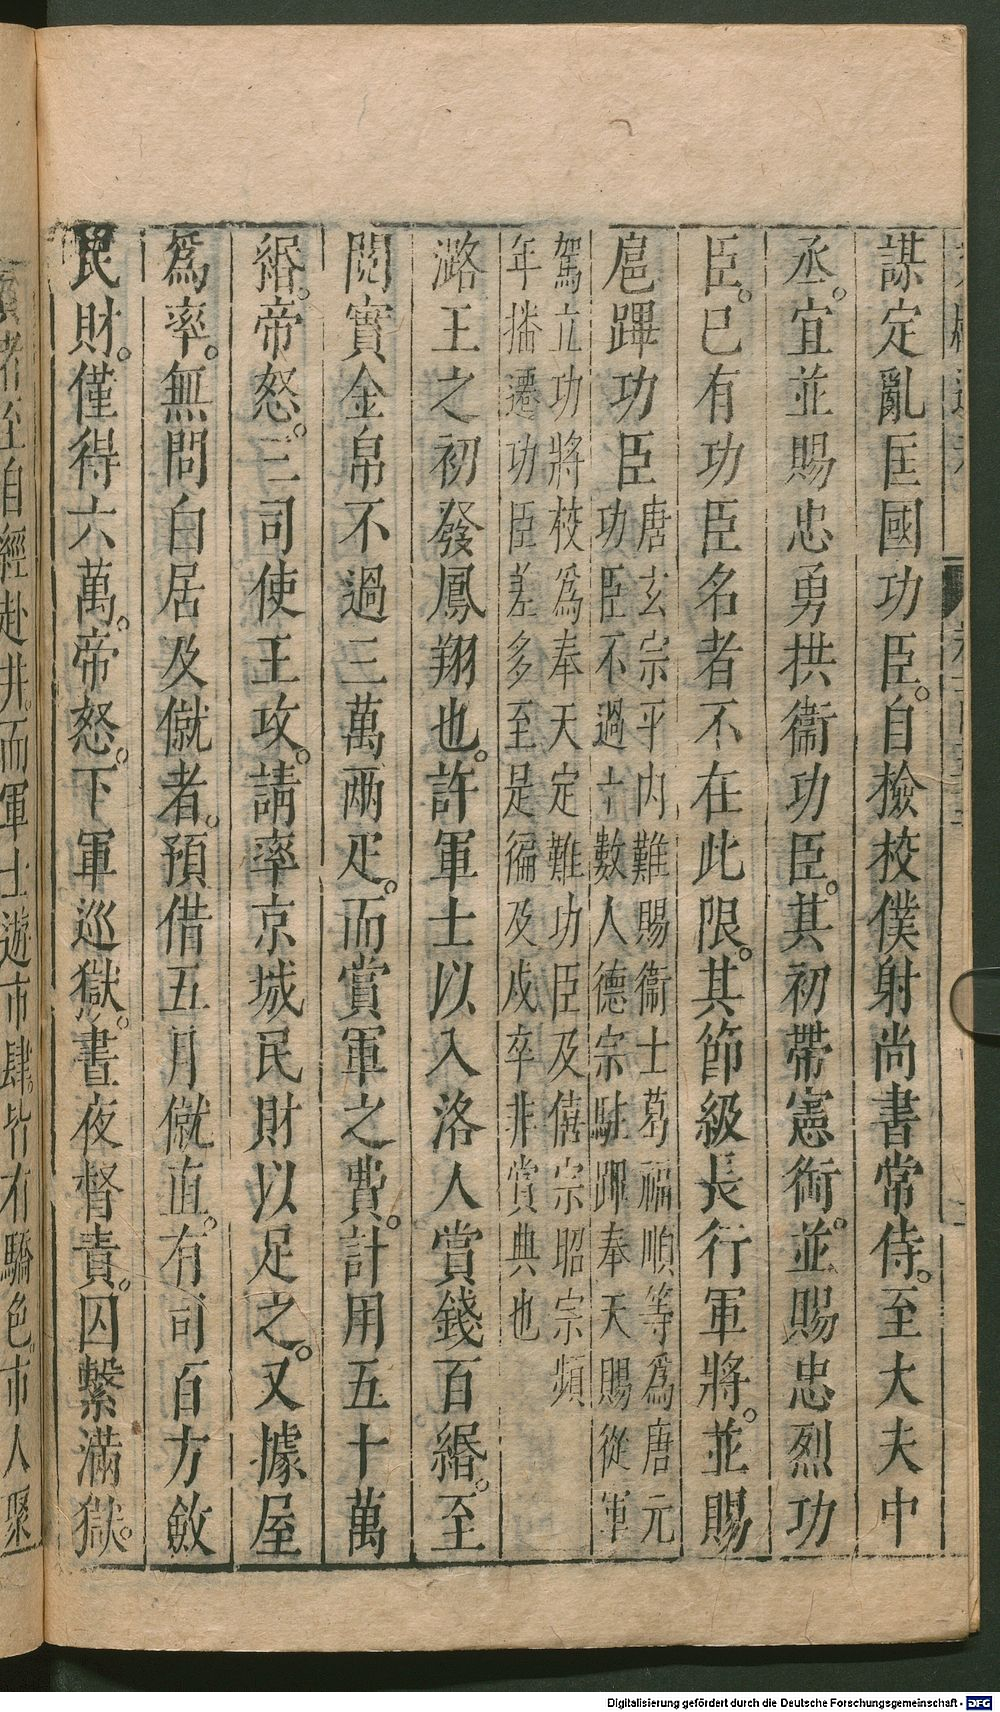 謀定亂匡國功臣。自撿挍僕射尚書常侍。至大夫中
丞。宜並賜忠勇拱衞功臣。其初帶憲銜。並賜忠烈功
臣。已有功臣名者不在此限。其節級長行軍將。並賜
扈蹕功臣
唐玄宗平內難賜衞士葛福順等爲唐元
功臣不過十數人德宗駐蹕奉天賜從軍
駕立功將校爲奉天定難功臣及僖宗昭宗頻
年播遷功臣差多至是徧及戍卒非賞典也
潞王之初發鳳翔也。許軍士以入洛人賞錢百緡。至
閱實金帛不過三萬兩疋。而賞軍之費。計用五十萬
緡。帝怒。三司使王攻。請率京城民財以足之。又據屋
爲率。無問自居及僦者。預借五月僦直。有司百方斂
民財。僅得六萬。帝怒。下軍巡獄。晝夜督責。囚繫滿獄。
至自經赴井。而軍士遊市肆。皆有驕色。市人聚
Digitalisierung gefördert durch die Deutsche Forschungsgemeinschaft - DFG